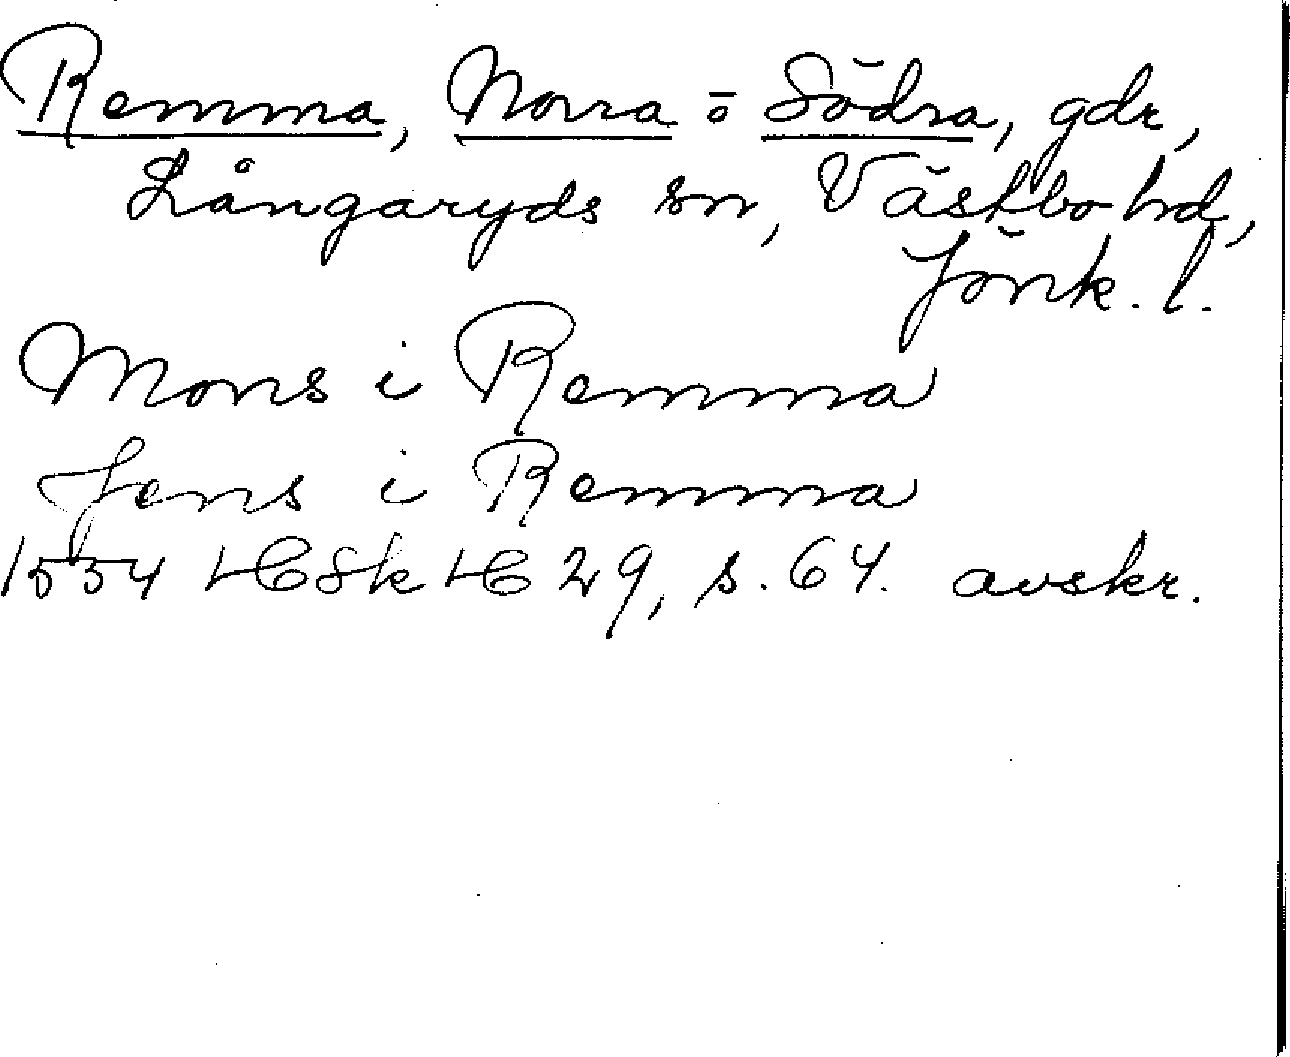 Remma, Norra o Södra, gdr,
Långaryds sn, Västbo hd,
Jönk. l.
Mons i Remma
Jens i Remma
1554 HC Sk HC 29, s. 64. avskr.